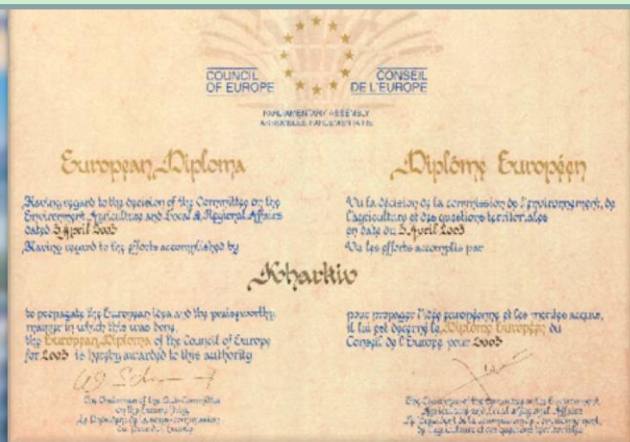 COUNCIL
OF EUROPE
CONSEIL
DE L'EUROPE
PARLIAMENTARY ASSEMBLY
ASSEMBLEE PARLEMENTAIRE
European Diploma
Having regard to the decision of the Committee on the
Environment, Agriculture and Local & Regional Affairs
dated 3 April 2003
Having regard to the efforts accomplished by
Diplôme Européen
Vu la décision de la commission de l'environnement, de
l'agriculture et des questions territoriales
en date du 3 Avril 2003
Vu les efforts accomplis par
Kharkiv
to propagate the European idea and the praiseworthy
manner in which this was done,
the European Diploma of the Council of Europe
for 2003 is hereby awarded to this authority
pour propager l'idée européenne et les mérites acquis,
il lui est décerné le Diplôme Européen du
Conseil de l'Europe pour 2003
The Chairman of the Sub-Committee
on the Europe Prize
The Chairman of the Committee on the Environment,
Agriculture and Local & Regional Affairs